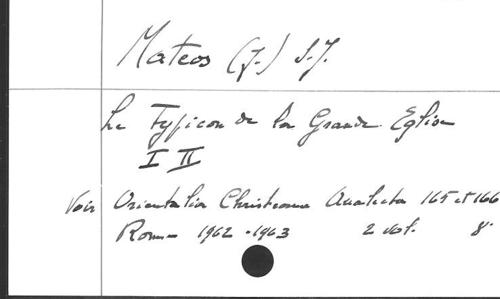 Mateos (J.) S.J.
Le Typicon de la Grande Eglise
I II
Voir Orientalia Christiana Analecta 165 et 166
Rome 1962-1963 2 vol. 8°